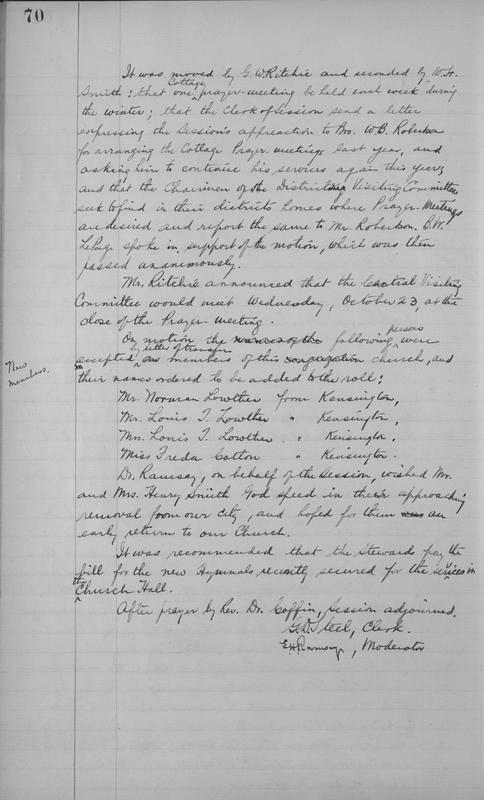 70
It was moved by G. W Ritchie and seconded by W. H.
Smith: that one Cottage prayer-meeting be held each week during
the winter; that the Clerk of Session send a letter
expressing the Session's appreciation to Bro. W. B. Robertson
for arranging the Cottage Prayer-meetings last year, and
asking him to continue his services again this year;
and that the Chairmen of the District Visiting Committees
seek to find in their districts homes where Prayer-Meetings
are desired and report the same to Mr. Robertson. B.W.
LePage spoke in support of the motion, which was then
passed unanimously.
Mr. Ritchie announced that the Central Visiting
Committee would meet Wednesday, October 23, at the
close of the Prayer-meeting.
On motion the names of the following persons were
New
members.
accepted by letter of transfer as members of this congregation church, and
their names ordered to be added to the roll:
Mr. Norman Lowther from Kensington,
Mr. Louis T. Lowther " Kensington,
Mrs. Louis T. Lowther " Kensington,
Miss Freda Cotton " Kensington.
Dr. Ramsay, on behalf of the Session, wished Mr.
and Mrs. Henry Smith God speed in their approaching
removal from our city, and hoped for them an
early return to our Church.
It was recommended that the Stewards pay the
bill for the new Hymnals recently secured for the services in
the Church Hall.
After prayer by Rev. Dr. Coffin, Session adjourned.
G. D. Steel, Clerk.
E H Ramsay, Moderator